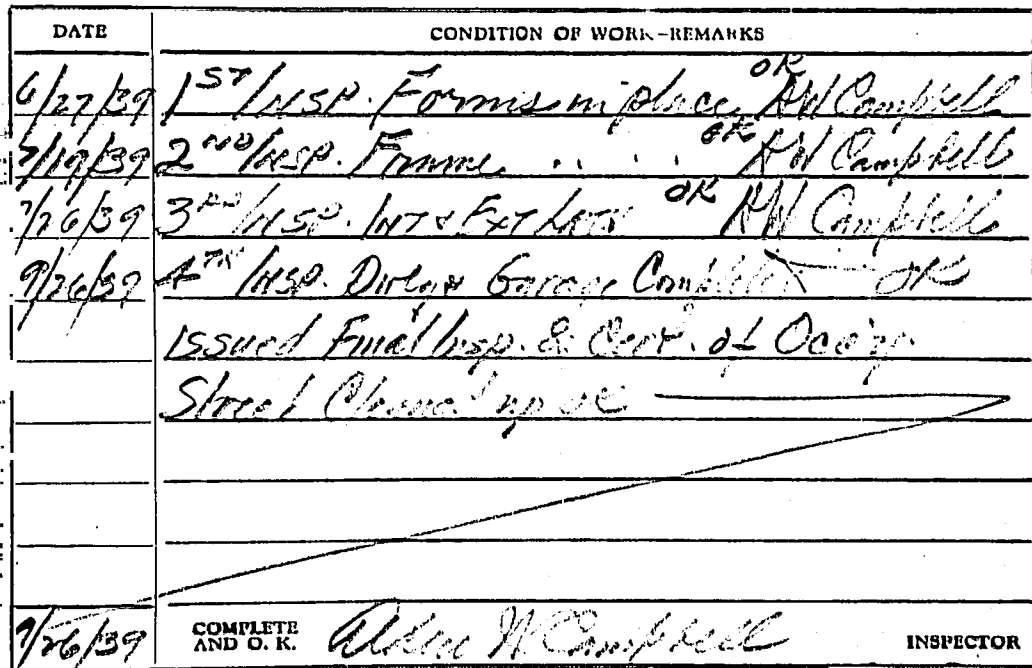 DATE CONDITION OF WORK-REMARKS
6/27/39 1ST INSP. Forms in place OK AW Campbell
7/19/39 2ND INSP. Frame .. . . OK AW Campbell
7/26/39 3RD INSP. INT & EXT Lath OK AW Campbell
9/26/39 4TH INSP. Dwlg & Garage Completed OK
Issued Final Insp. & Cert. of Occ'y.
Street Cleaned up OK
9/26/39 COMPLETE AND O. K. W Campbell INSPECTOR